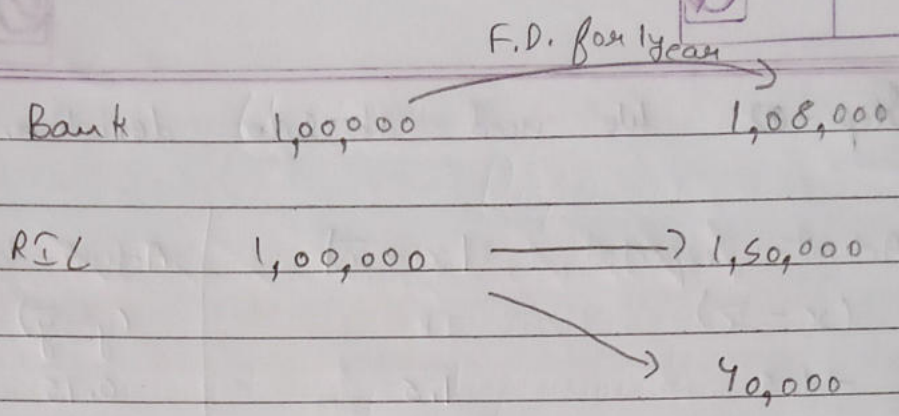 F.D. for 1year
Bank 1,00,000 1,08,000
RIL 1,00,000 → 1,50,000
40,000